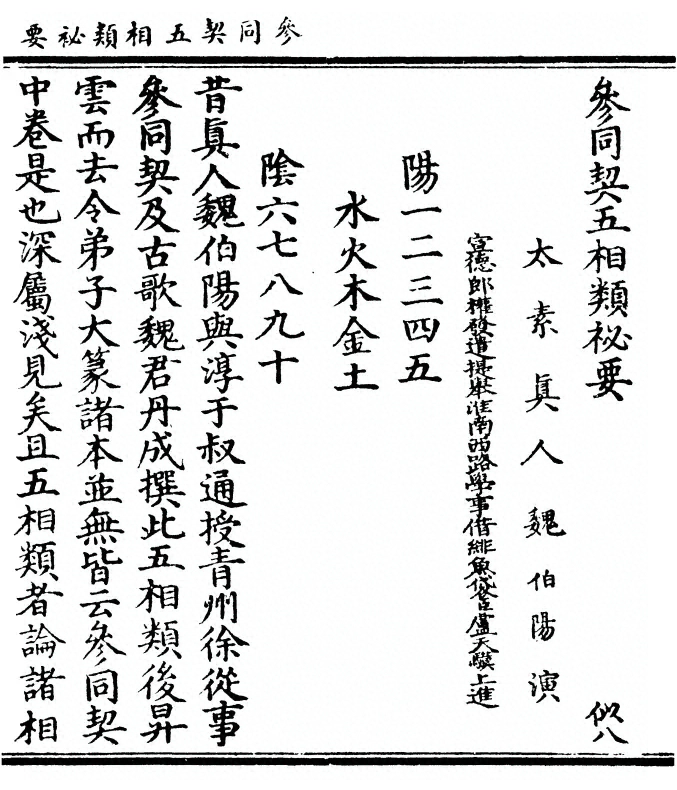 參同契五相類祕要
參同契五相類祕要 似八
太素眞人魏伯陽演
宣德郎權發遣提舉淮南西路學事借緋魚袋臣盧天驥上進
陽一二三四五
水火木金土
陰六七八九十
昔眞人魏伯陽與淳于叔通授青州徐從事
參同契及古歌魏君丹成撰此五相類後昇
雲而去令弟子大篆諸本並無皆云參同契
中卷是也深屬淺見矣且五相類者論諸相